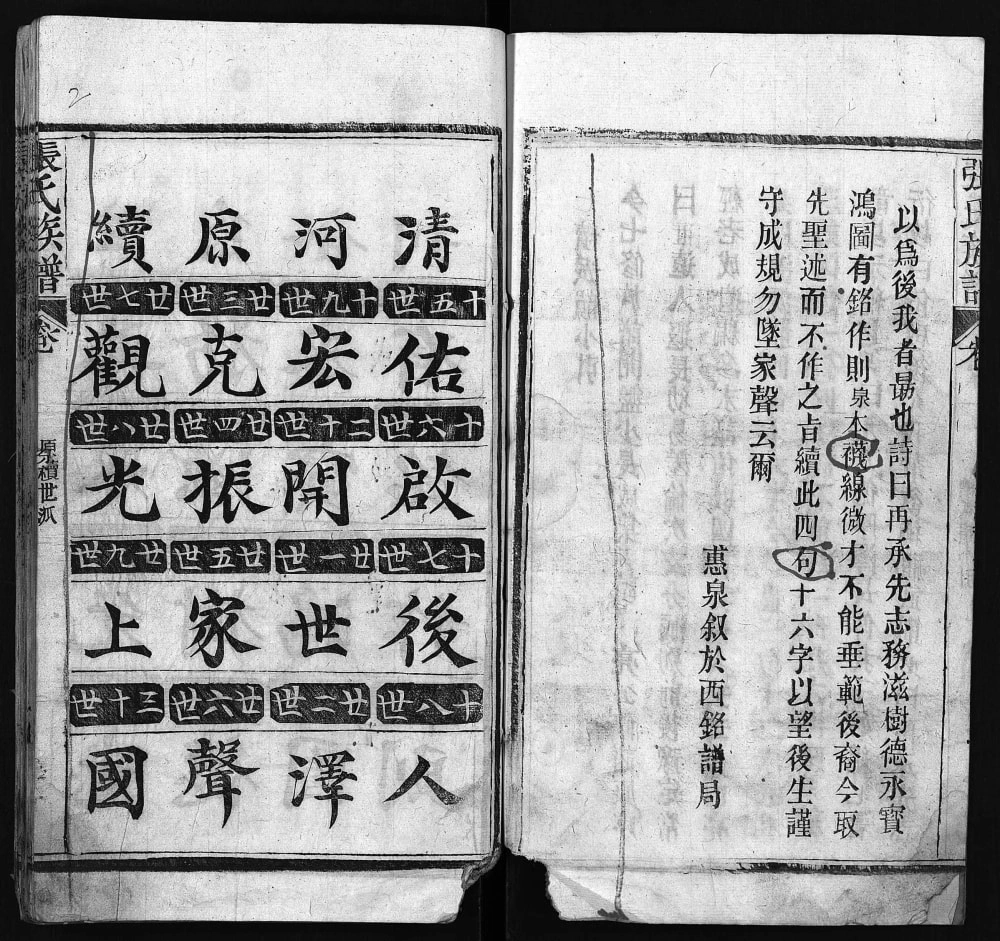 張氏族譜
卷
以爲後我者勗也詩曰再承先志務滋樹德永寶
鴻圖有銘作則泉本襪線微才不能垂範後裔今取
先聖述而不作之旨續此四句十六字以望後生謹
守成規勿墜家聲云爾
惠泉叙於西銘譜局
清
十五世
佑
十六世
啟
十七世
後
十八世
人
河
十九世
宏
二十世
開
廿一世
世
廿二世
澤
原
廿三世
克
廿四世
振
廿五世
家
廿六世
聲
續
廿七世
觀
廿八世
光
廿九世
上
三十世
國
張氏族譜
原續世派
2